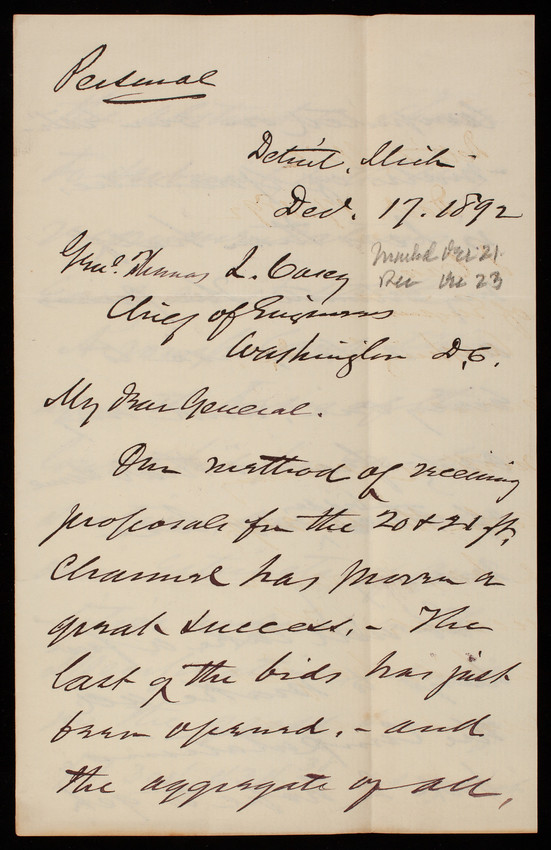 Personal
Detroit, Mich.
Dec. 17. 1892
Dec 21.
Rec Dec 23
Genl. Thomas L. Casey
Chief of Engineers
Washington D.C.
My Dear General.
Our method of receiving
proposals for the 20 & 21 ft.
Channel has proven a
great success. - The
last of the bids has just
been opened. - and
the aggregate of all,